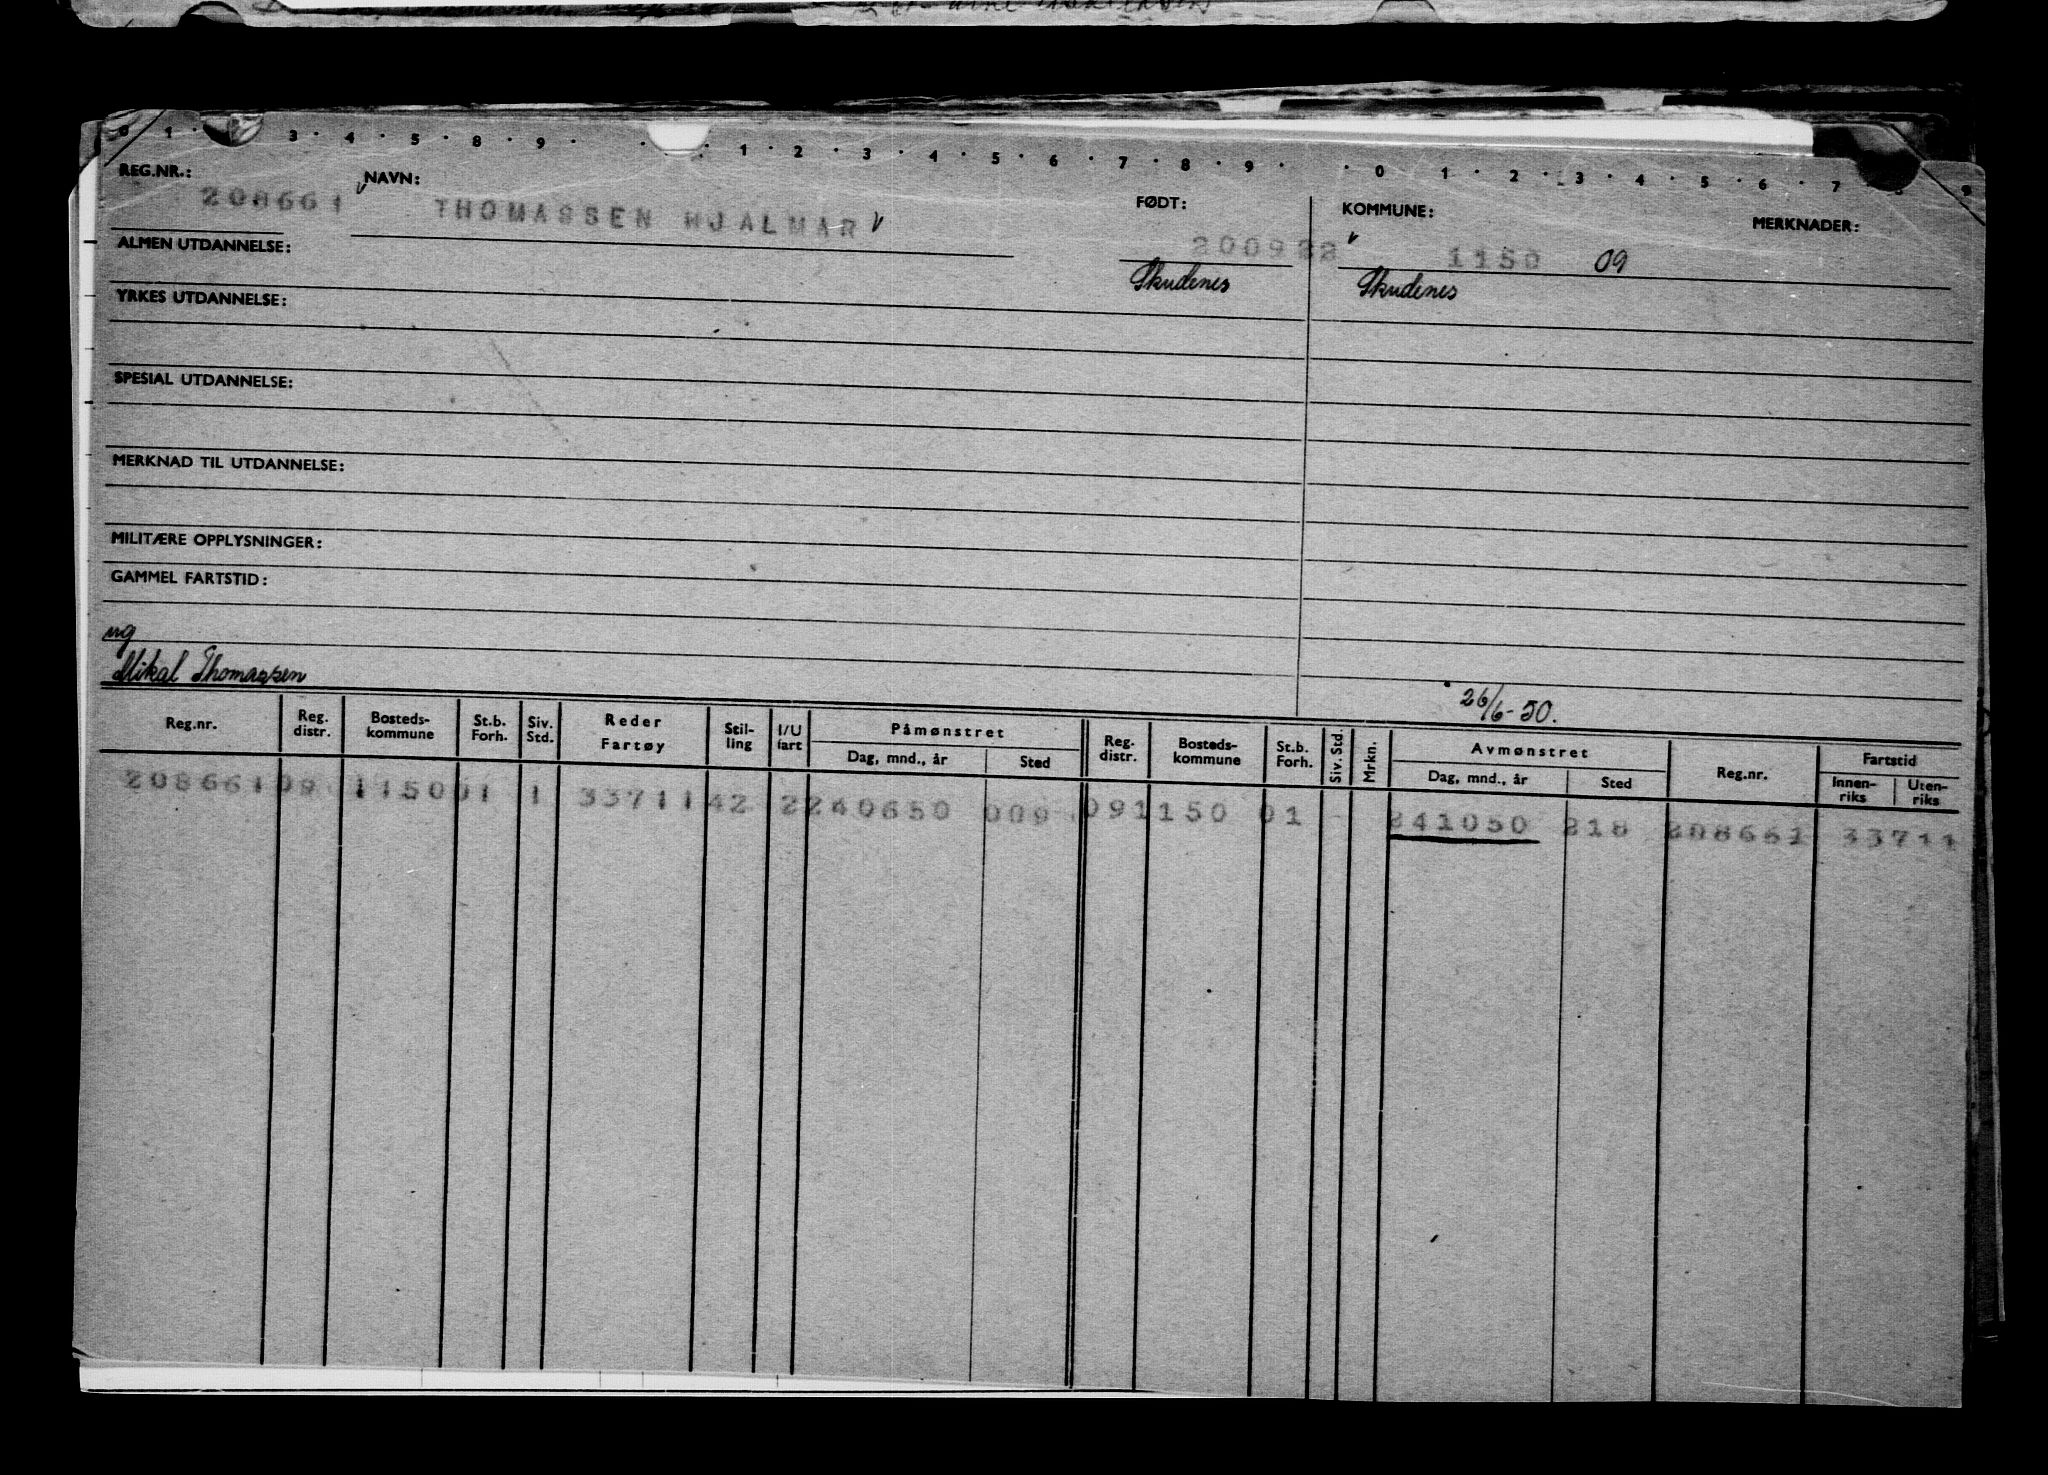 0 1 · 3 · 4 · 5 · 8 · 9 · · · 1 · 2 · 3 · 4 · 5 · 6 · 7 · 8 · 9 · · 0 1 · 2 · 3 · 4 · 5 · 6 · 7 · 8 9
REG.NR.: NAVN: FØDT: KOMMUNE: MERKNADER:
208661 THOMASSEN HJALMAR 1150 09
ALMEN UTDANNELSE: Skudenes Skudenes
YRKES UTDANNELSE:
SPESIAL UTDANNELSE:
MERKNAD TIL UTDANNELSE:
MILITÆRE OPPLYSNINGER:
GAMMEL FARTSTID:
ug
Mikal Thomassen
26/6-50.
Reg.nr. Reg. distr. Bosteds- kommune St.b. Forh. Siv. Std. Reder Fartøy Stil- ling I/U fart Påmønstret Dag, mnd., år Sted Reg. distr. Bosteds- kommune St.b. Forh. Siv. Std. Mrkn. Avmønstret Dag, mnd., år Sted Reg.nr. Fartstid Innen- riks Uten- riks
208661 09 1150 01 1 33711 42 2 240650 009 09 1150 01 - 241050 218 208661 33711